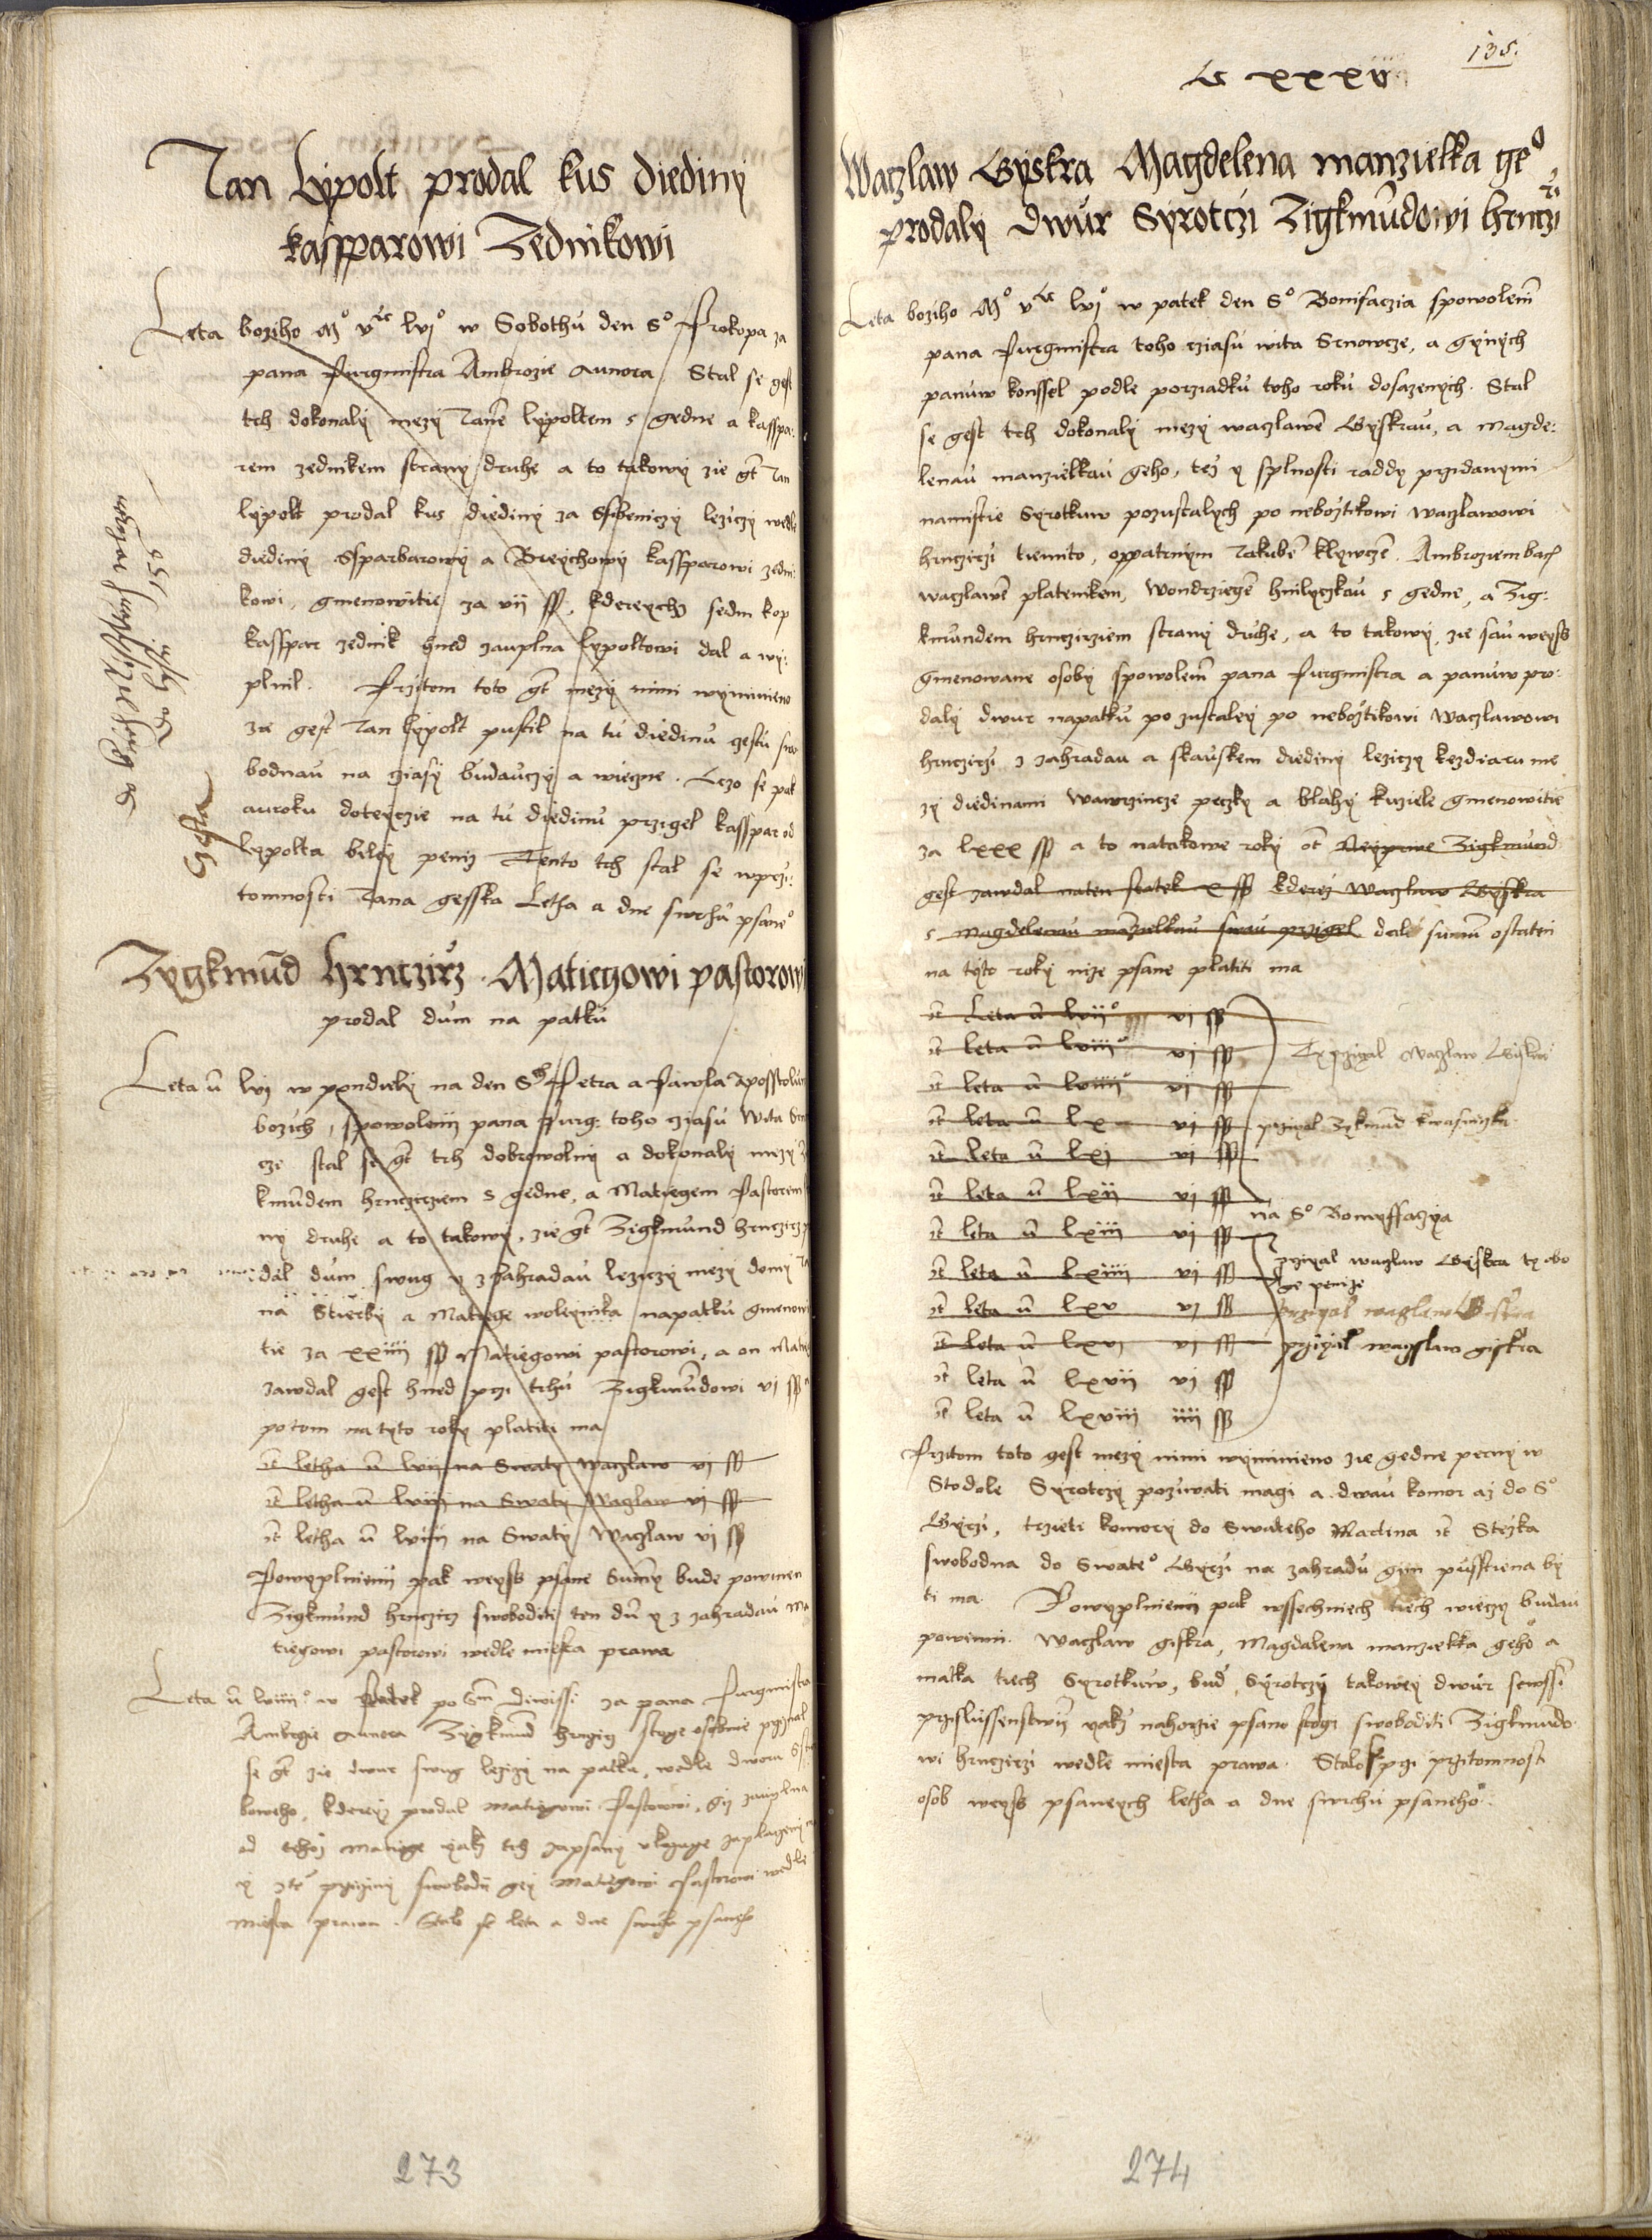 Jan Lypolt prodal kus diediny
kassparowi Zednikowi
Leta bozího Mº vᶜ lvjº w Sobothu den Sº Prokopa za
pana Purgmistra Ambrozie Stal se gest
trh dokonaly mezy Janē lypoltem s gedne a kasspa:
rem zednikem strany druhe a to takowy zie gt Jan
lypolt prodal kus diediny za Ssibeniczy leziczy wedle
diediny Ssparbarowy a Breychowy kassparowi zedni:
kowi, gmenowitie za vii ss, kdereychz sedm kop
kasspar zednik hned zauplna lypoltowi dal a wy:
plnil. Przitom toto gt mezy nimi wyminieno
ze gest Jan lypolt pustil na tu diedinu czestu swo
bodnau na cziasy budauczy a wieczne. Czo se pak
auroku doteyczie na tu diedinu przigel kasspar od
lypolta biley peniz Tento trh stal se wprzi:
tomnosti Jana gesska Letha a dne swrchu psaneº
Zygkmūd hrnczirz Matiegowi pastorowi
prodal dum na patku
Leta ū lvj w pondiely na den Sͭʰ Petra a Pawla Aposstolu
bozich, spowolenij pana Purg: toho cziasu Wita Srn
cze stal se gt trh dobrowolny a dokonaly mezy Z
kmundem hrnczirziem s gedne, a Matiegem Pastorem
ny druhe a to takowy, zie gt Zigkmund hrnczirz p
dal dum swug y z zahradau leziczy mezy domy Ja
na Stiecky a Matiege woleynika napatku gmenowi
tie za xxiiii ss Matiegowi pastorowi, a on Matieg
zawdal gest hned przi trhu Zigkmūdowi vj ss
potom na tyto roky platiti ma
it letha ū lvii na Swaty Waczlaw vj ss
it letha ū lviii na Swaty Waczlaw vj ss
it letha ū lviiii na Swaty Waczlaw vj ss
Powyplnieni pak weyss psane Summy bude powinen
Zigkmund hrnczirz swoboditi ten dū y z zahradau Ma
tiegowi pastorowi wedle miesta prawa
Leta ū lviiiiº w Patek po Sm Diwissi za pana Purgmistra
Ambrozie Zygkmūd hrnczirz stoge osobnie prziznal
se gt zie dwur swug lezizy na patku, wedle dwora
boweho, kderyz prodal Matiegowi Pastorowi, giz zauplna
od tehoz Matiege yakz trh zapsany vkazuge zaplaczeny
y z te prziziny swobodi gey Matiegowi Pastorowi wedle
miesta prawa. Stalo se leta a dne swrchu psaneho
273
135.
C xxxv
Waczlaw Gyskra Magdelena manzielka geº
prodaly dwur Syrotczi Zigkmūdowi hrnczirzi
Leta bozího Mº vᶜ lvjº w patek den Sº Bonifaczia spowolenim
pana Purgmistra toho cziasu wita Srnowcze, a gynych
panuw konssel podle porziadku toho roku dosazenych. Stal
se gest trh dokonaly mezy waczlawē Gyskrau, a Magde:
lenau manzielkau geho, tez y splnosti raddy przidanymi
namistie Syrotkuw pozustalych po neboztikowi waczlawowi
hrnczirzi tiemito, oppatrnym Jakubē klywczē. Ambroziem bach
waczlawē platenikem, Wondrziegē hnilyczkau s gedne, a Zig:
kmundem hrncziziem strany druhe, a to takowy, zie sau weyss
gmenowane osoby spowolenim pana Purgmistra a panuw pro:
daly dwur napatku pozustaley po neboztikowi Waczlawowi
hrnczirzi z zahradau a skauskem diediny leziczy me
zy diedinami Wawrzincze peczky a blahy kuziele gmenowitie
za lxxx ss a to natakowe roky it Neyprwe Zigkmund
gest zawdal naten statek x ss kderez Waczlaw Gyskra
s Magdelenau mazielkau swau przigel dalsi summ ostatni
na tyto roky nize psane platiti ma
it Leta ū lviiº vj ss
it leta ū lviiiº vj ss Ty prziyal Waczlaw Gyskra
it leta ū lviiiiº vj ss
it leta ū lx vj ss prziyal Zykmūd kwasniczka
it leta ū lxj vj ss
it leta ū lxii vj ss
na Sº Bonyffaczya
it leta ū lxiii vj ss
it leta ū lxiiii vj ss prziyal waczlaw Gyskra ty obo
ge penize
it leta ū lxv vj ss prziyal waczlaw Giskra
it leta ū lxvi vj ss przyyal waczslaw giskra
it leta ū lxvii vj ss
it leta ū lxviii iiii ss
Przitom toto gest mezy nimi wyminieno zie gedne perny w
Stodole Syrotczy pozuwati magi a dwau komor az do Sº
Gyrzi, trzieti komory do Swateho Martina it Stezka
swobodna do Swateº Gyrzi na zahradu gim pusstiena by
ti ma. Powyplnieni pak wssechniech tiech wieczy budau
powinni. Waczlaw giskra, Magdalena manzielka gehº a
matka tiech Syrotkuw, bud Syrotczy takowey dwur sewssi
przislussenstwij yakz nahorzie psano stogi swoboditi Zigkmūdo
wi hrnczirzi wedle miesta prawa. Stalo se przi pritomnosti
osob weyss psaneych letha a dne swrchu psaneho.
274